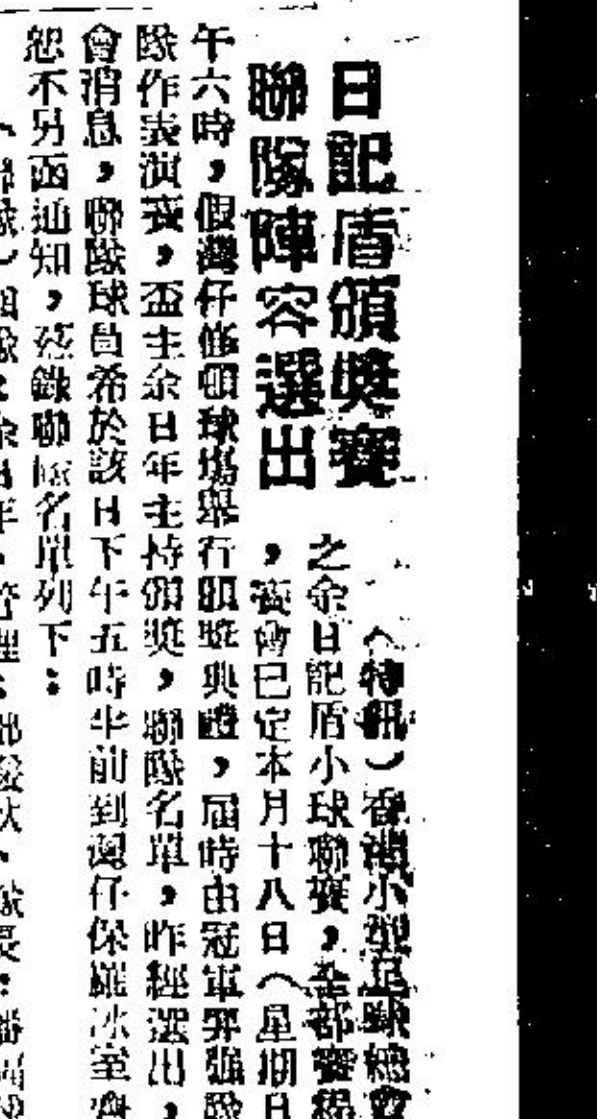 日記盾頒獎賽
聯隊陣容選出
（特訊）香港小型足球總會
之余日記盾小球聯賽，全部賽程
，賽會已定本月十八日（星期日
午六時，假灣仔修頓球塲舉行頒獎典禮，屆時由冠軍羿強隊
隊作表演賽，盃主余日年主持頒獎，聯隊名單，昨經選出，
會消息，聯隊球員希於該日下午五時半前到灣仔保羅冰室齊
恕不另函通知，茲錄聯隊名單列下：